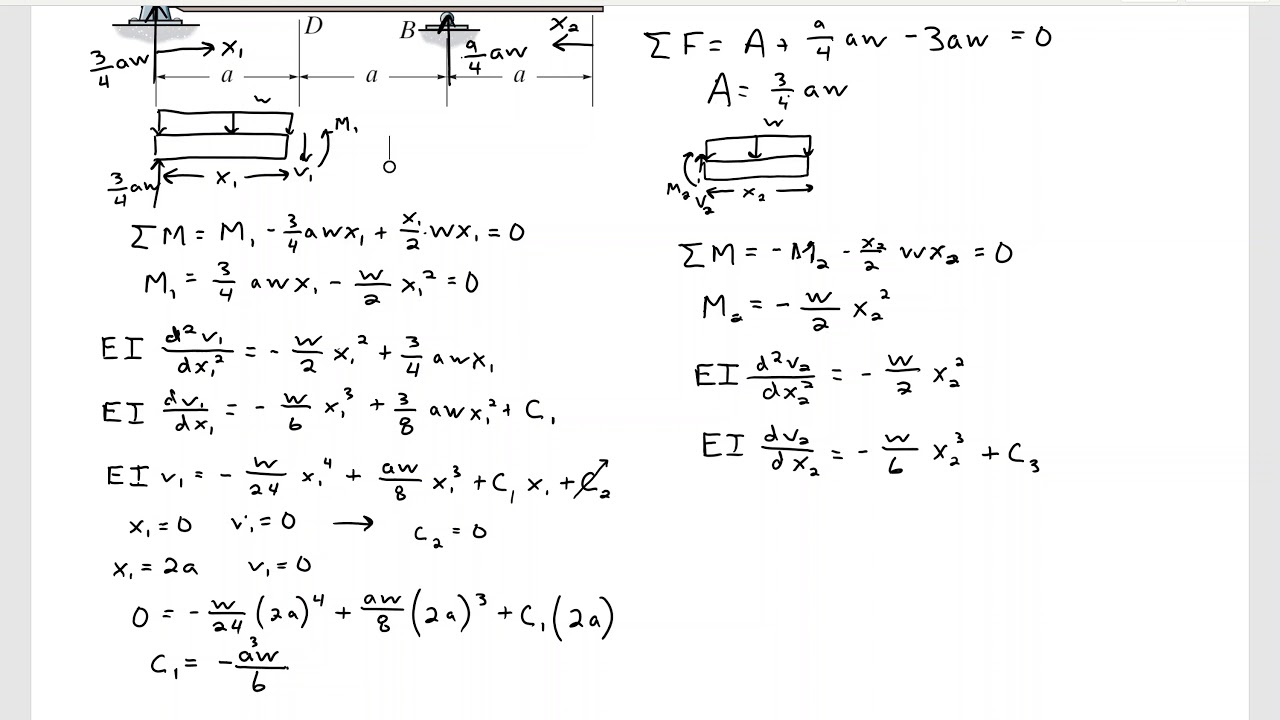 D
B
x₂
3/4 aw
x₁
9/4 aw
a
a
a
w
M₁
v₁
3/4 aw
x₁
ΣM = M₁ - 3/4 awx₁ + x₁/2 · wx₁ = 0
M₁ = 3/4 awx₁ - w/2 x₁² = 0
EI d²v₁/dx₁² = - w/2 x₁² + 3/4 awx₁
EI dv₁/dx₁ = - w/6 x₁³ + 3/8 awx₁² + C₁
EI v₁ = - w/24 x₁⁴ + aw/8 x₁³ + C₁ x₁ + C₂
x₁ = 0 v₁ = 0 → C₂ = 0
x₁ = 2a v₁ = 0
0 = - w/24 (2a)⁴ + aw/8 (2a)³ + C₁ (2a)
C₁ = - a³w/6
ΣF = A + 9/4 aw - 3aw = 0
A = 3/4 aw
w
M₂
V₂
x₂
ΣM = - M₂ - x₂/2 wx₂ = 0
M₂ = - w/2 x₂²
EI d²v₂/dx₂² = - w/2 x₂²
EI dv₂/dx₂ = - w/6 x₂³ + C₃